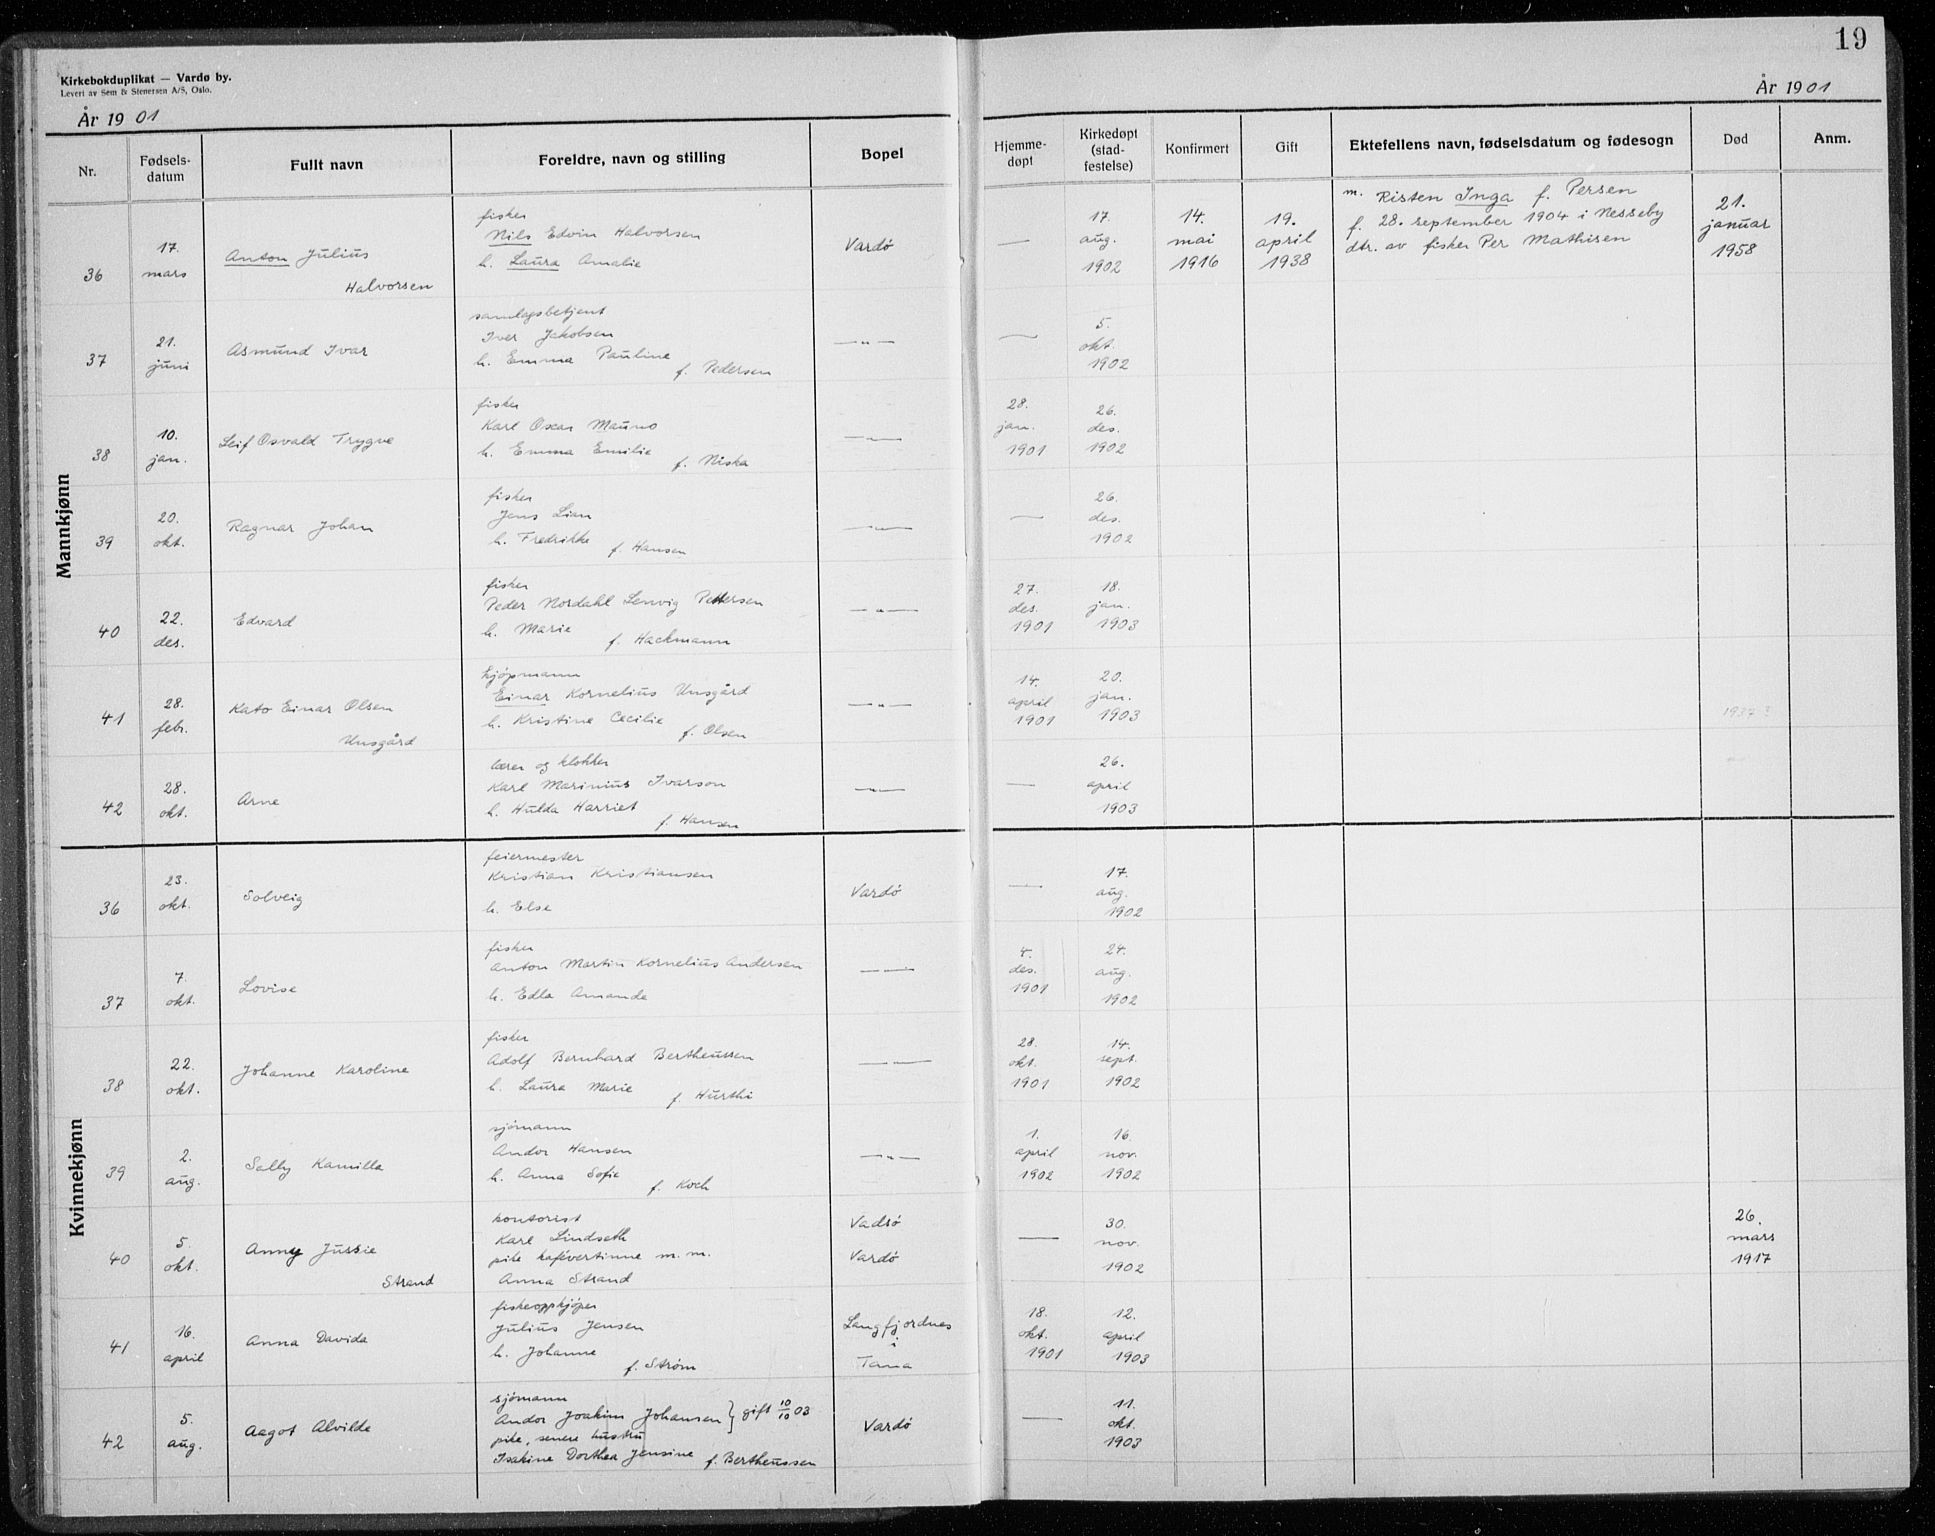 19
Kirkebokduplikat — Vardø by.
Levert av Sem & Stenersen A/S, Oslo.
År 1901
År 1901
Nr.
Fødsels-
datum
Fullt navn
Foreldre, navn og stilling
Bopel
Hjemme-
døpt
Kirkedøpt
(stad-
festelse)
Konfirmert
Gift
Ektefellens navn, fødselsdatum og fødesogn
Død
Anm.
Mannkjønn
36
17.
mars
Anton Julius
Halvorsen
fisker
Nils Edvin Halvorsen
h. Laura Amalie
Vardø
—
17.
aug.
1902
14.
mai
1916
19.
april
1938
m. Risten Inga f. Persen
f. 28. september 1904 i Nesseby
dtr. av fisker Per Mathisen
21.
januar
1958
37
21.
juni
Asmund Ivar
samlagsbetjent
Iver Jakobsen
h. Emma Pauline
f. Pedersen
—"—
—
5.
okt.
1902
38
10.
jan.
Leif Osvald Trygve
fisker
Karl Oscar Mauno
h. Emma Emilie
f. Niska
—"—
28.
jan.
1901
26.
des.
1902
39
20.
okt.
Ragnar Johan
fisker
Jens Lian
h. Fredrikke
f. Hansen
—"—
—
26.
des.
1902
40
22.
des.
Edvard
fisker
Peder Nordahl Lenvig Pettersen
h. Marie
f. Hackmann
—"—
27.
des.
1901
18.
jan.
1903
41
28.
febr.
Kato Einar Olsen
Unsgård
kjøpmann
Einar Kornelius Unsgård
h. Kristine Cecilie
f. Olsen
—"—
14.
april
1901
20.
jan.
1903
1937?
42
28.
okt.
Arne
lærer og klokker
Karl Marinius Ivarson
h. Hulda Harriet
f. Hansen
—"—
—
26.
april
1903
Kvinnekjønn
36
23.
okt.
Solveig
feiermester
Kristian Kristiansen
h. Else
Vardø
—
17.
aug.
1902
37
7.
okt.
Lovise
fisker
Anton Martin Kornelius Andersen
h. Edla Amanda
—"—
4.
des.
1901
24.
aug.
1902
38
22.
okt.
Johanne Karoline
fisker
Adolf Bernhard Bertheussen
h. Laura Marie
f. Hurthi
—"—
28.
okt.
1901
14.
sept.
1902
39
2.
aug.
Sally Kamilla
sjømann
Andor Hansen
h. Anna Sofie
f. Koch
—"—
1.
april
1902
16.
nov.
1902
40
5.
okt.
Anny Jussie
Strand
kontorist
Karl Lindseth
pike kafévertinne m.m.
Anna Strand
Vadsø
Vardø
—
30.
nov.
1902
26.
mars
1917
41
16.
april
Anna Davida
fiskeoppkjøper
Julius Jensen
h. Johanne
f. Strøm
Langfjordnes
i
Tana
18.
okt.
1901
12.
april
1903
42
5.
aug.
Aagot Alvilde
sjømann
Andor Joakim Johansen } gift 10/10 03
pike, senere hustru
Isakine Dorthea Jensine f. Bertheussen
Vardø
—
11.
okt.
1903